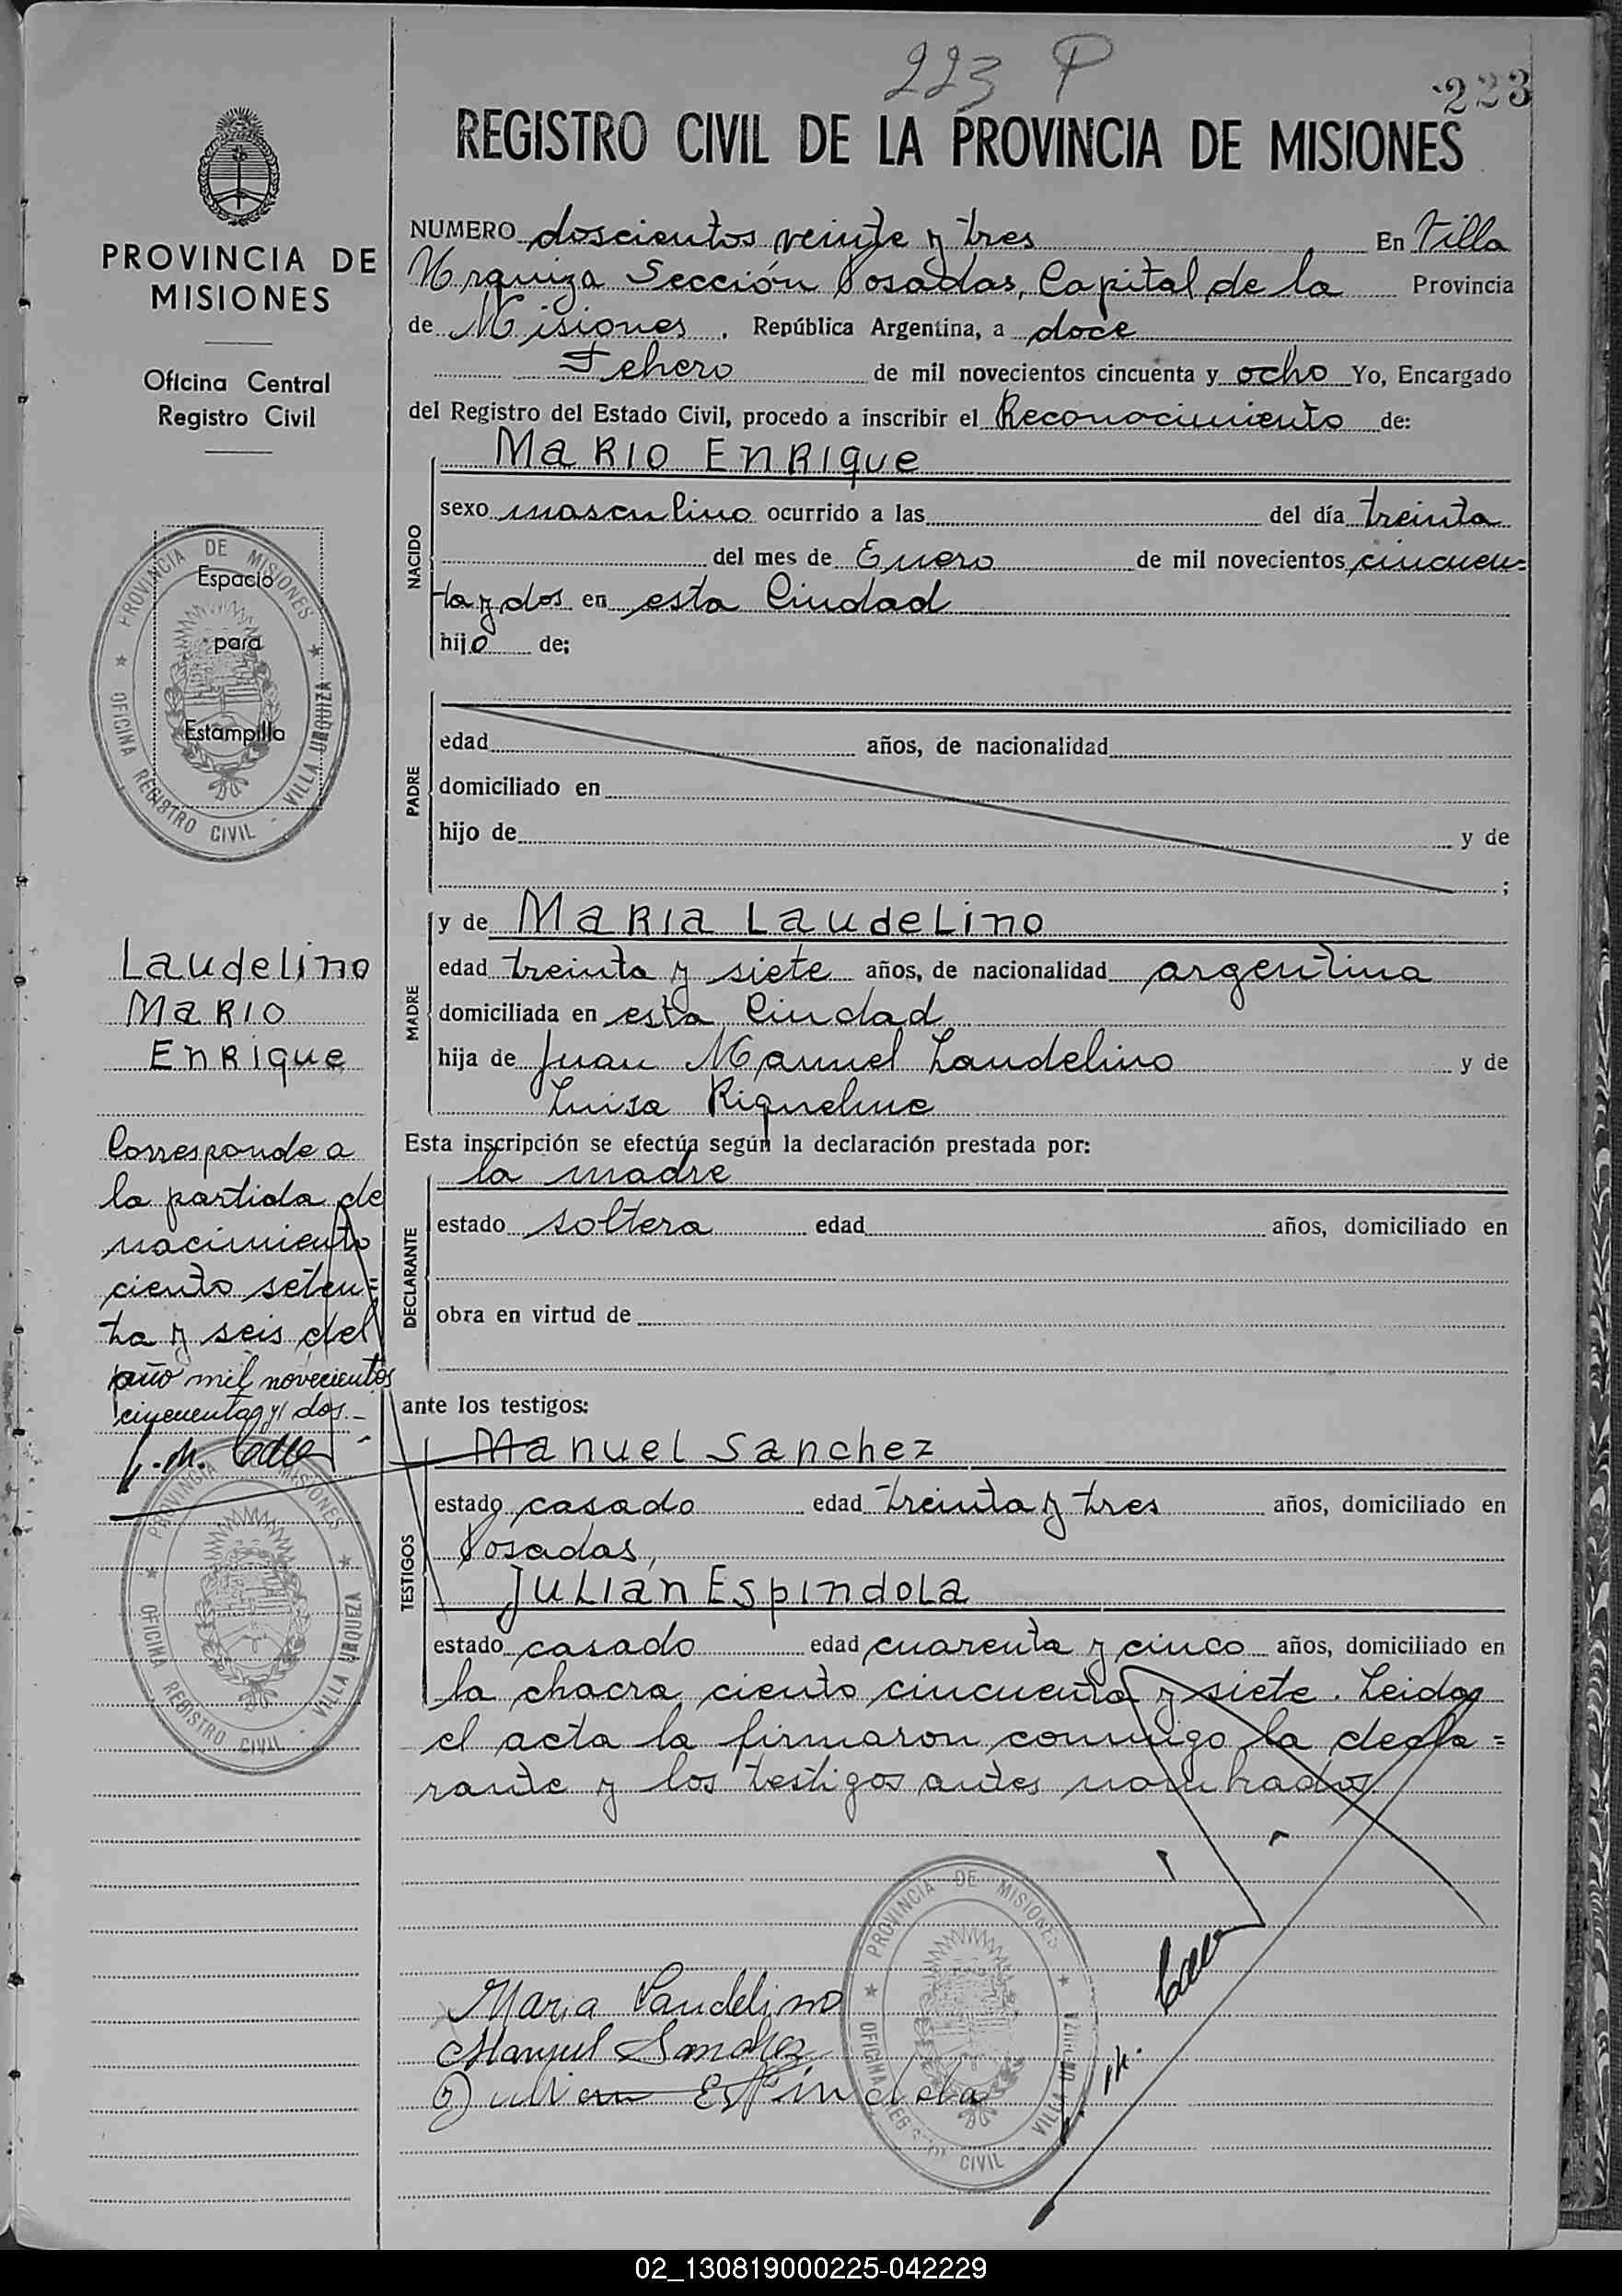 223 P
223
REGISTRO CIVIL DE LA PROVINCIA DE MISIONES
PROVINCIA DE
MISIONES
Oficina Central
Registro Civil
PROVINCIA DE MISIONES
OFICINA REGISTRO CIVIL - VILLA URQUIZA
Espacio
para
Estampilla
Laudelino
Mario
Enrique
Corresponde a
la partida de
nacimiento
ciento seten=
ta y seis del
año mil novecientos
cincuenta y dos.-
PROVINCIA MISIONES
OFICINA REGISTRO CIVIL - VILLA URQUEZA
NUMERO doscientos veinte y tres En Villa
Urquiza Sección Posadas, Capital de la Provincia
de Misiones, República Argentina, a doce
Febero de mil novecientos cincuenta y ocho Yo, Encargado
del Registro del Estado Civil, procedo a inscribir el Reconocimiento de:
Mario Enrique
NACIDO
sexo masculino ocurrido a las del día treinta
del mes de Enero de mil novecientos cincuen=
ta y dos en esta Ciudad
hijo de;
PADRE
edad años, de nacionalidad
domiciliado en
hijo de y de
;
MADRE
y de Maria Laudelino
edad treinta y siete años, de nacionalidad argentina
domiciliada en esta Ciudad
hija de Juan Manuel Laudelino y de
Luisa Riquelme
Esta inscripción se efectúa según la declaración prestada por:
DECLARANTE
la madre
estado soltera edad años, domiciliado en
obra en virtud de
ante los testigos:
TESTIGOS
Manuel Sanchez
estado casado edad treinta y tres años, domiciliado en
Posadas,
Julian Espindola
estado casado edad cuarenta y cinco años, domiciliado en
la chacra ciento cincuenta y siete. Leida
el acta la firmaron conmigo la decla=
rante y los testigos antes nombrados.
PROVINCIA DE MISIONES
OFICINA REGISTRO CIVIL VILLA URQUIZA
Maria Laudelino
Manuel Sanchez
Julian Espindola
02_130819000225-042229